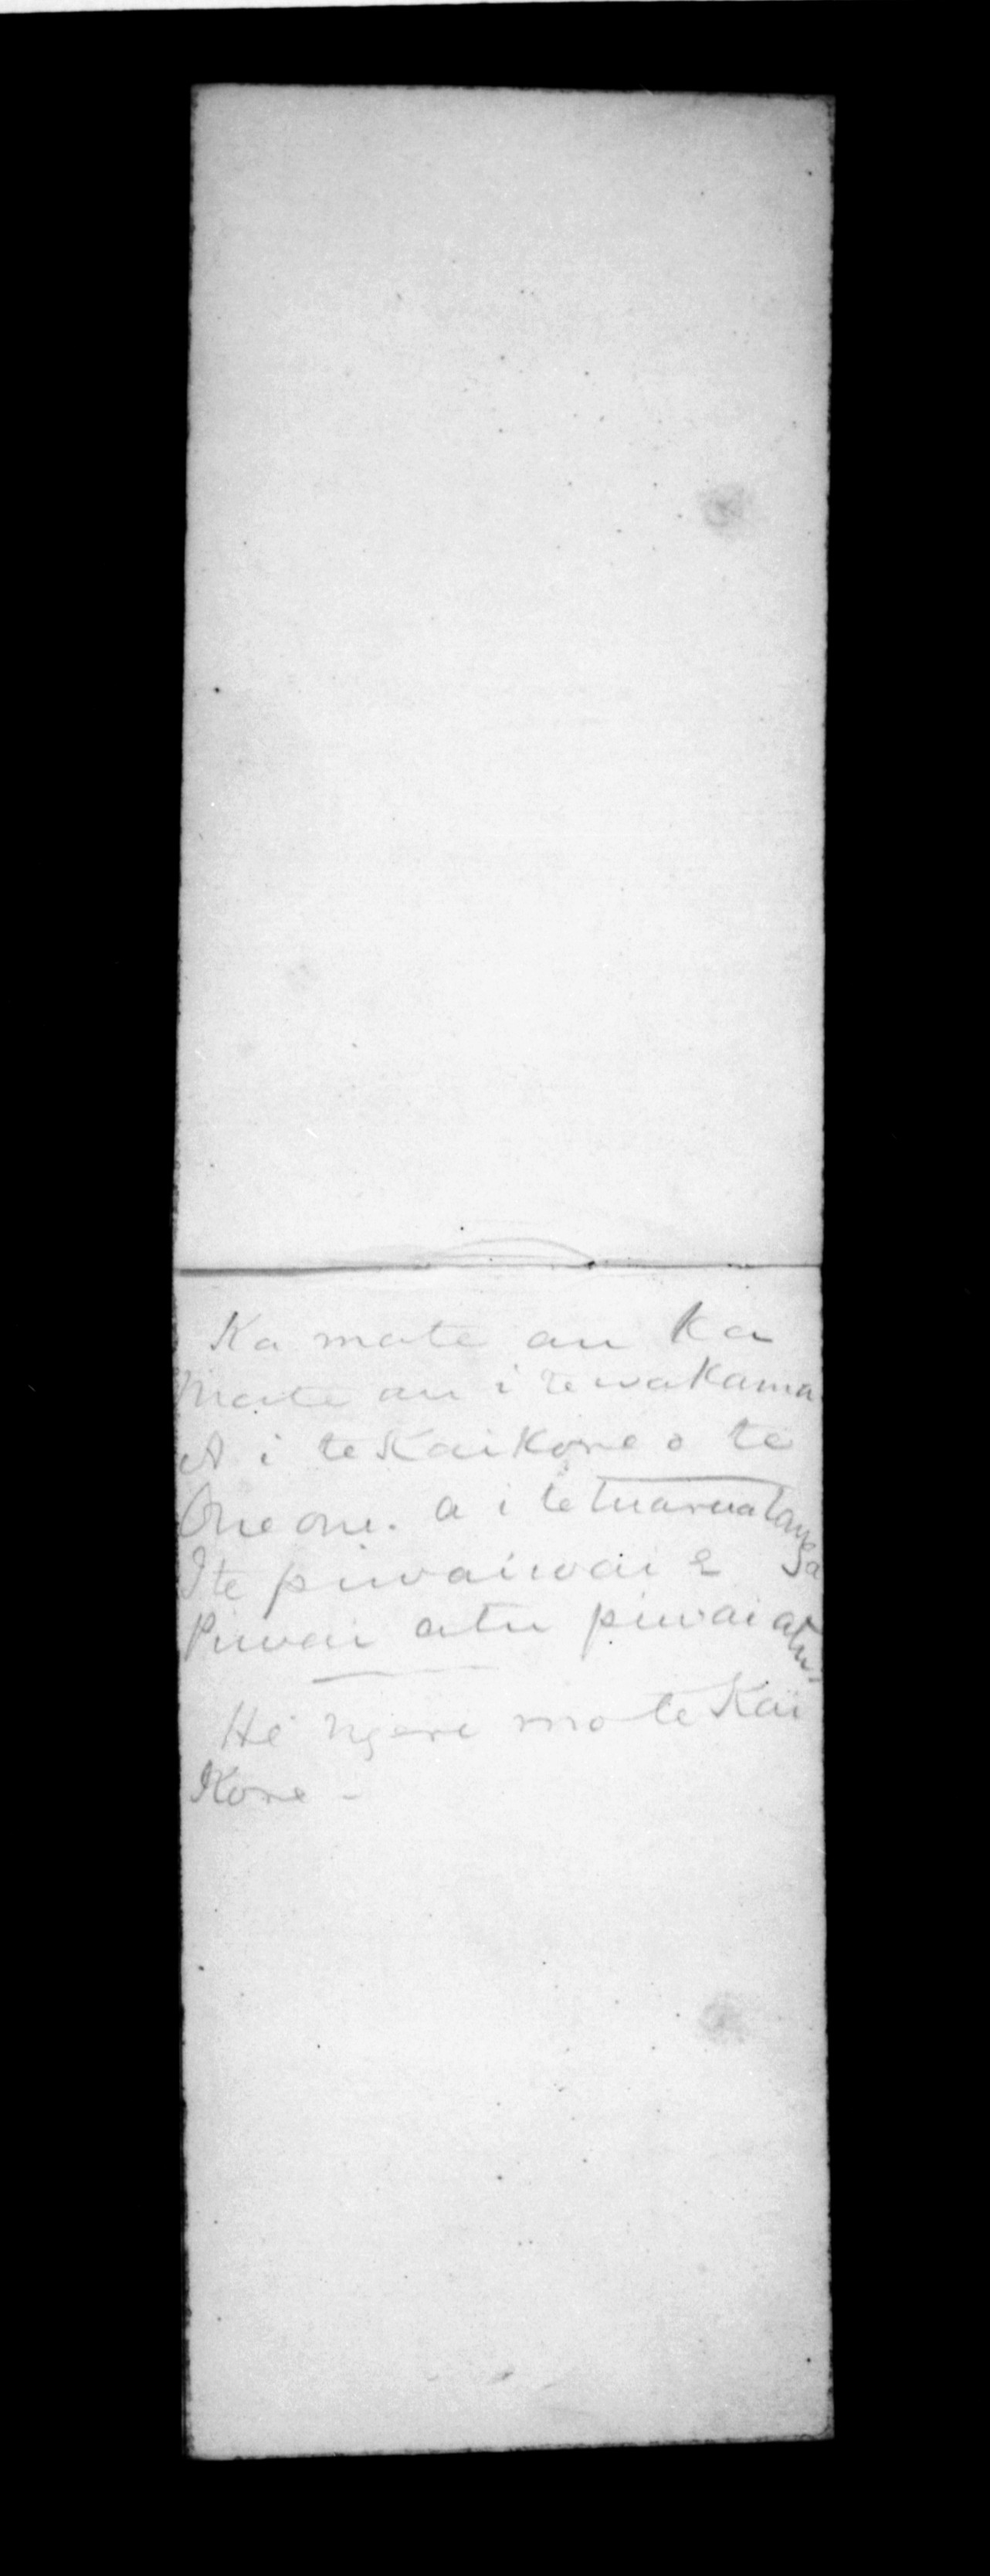 Ka mate au ka
Mate au i te wakama
A i te Kaikore o te
Oneone. a i te tuaruatanga
I te piwaiwai e
Piwai atu piwai atu
He ngeri mo te Kai
Kore -